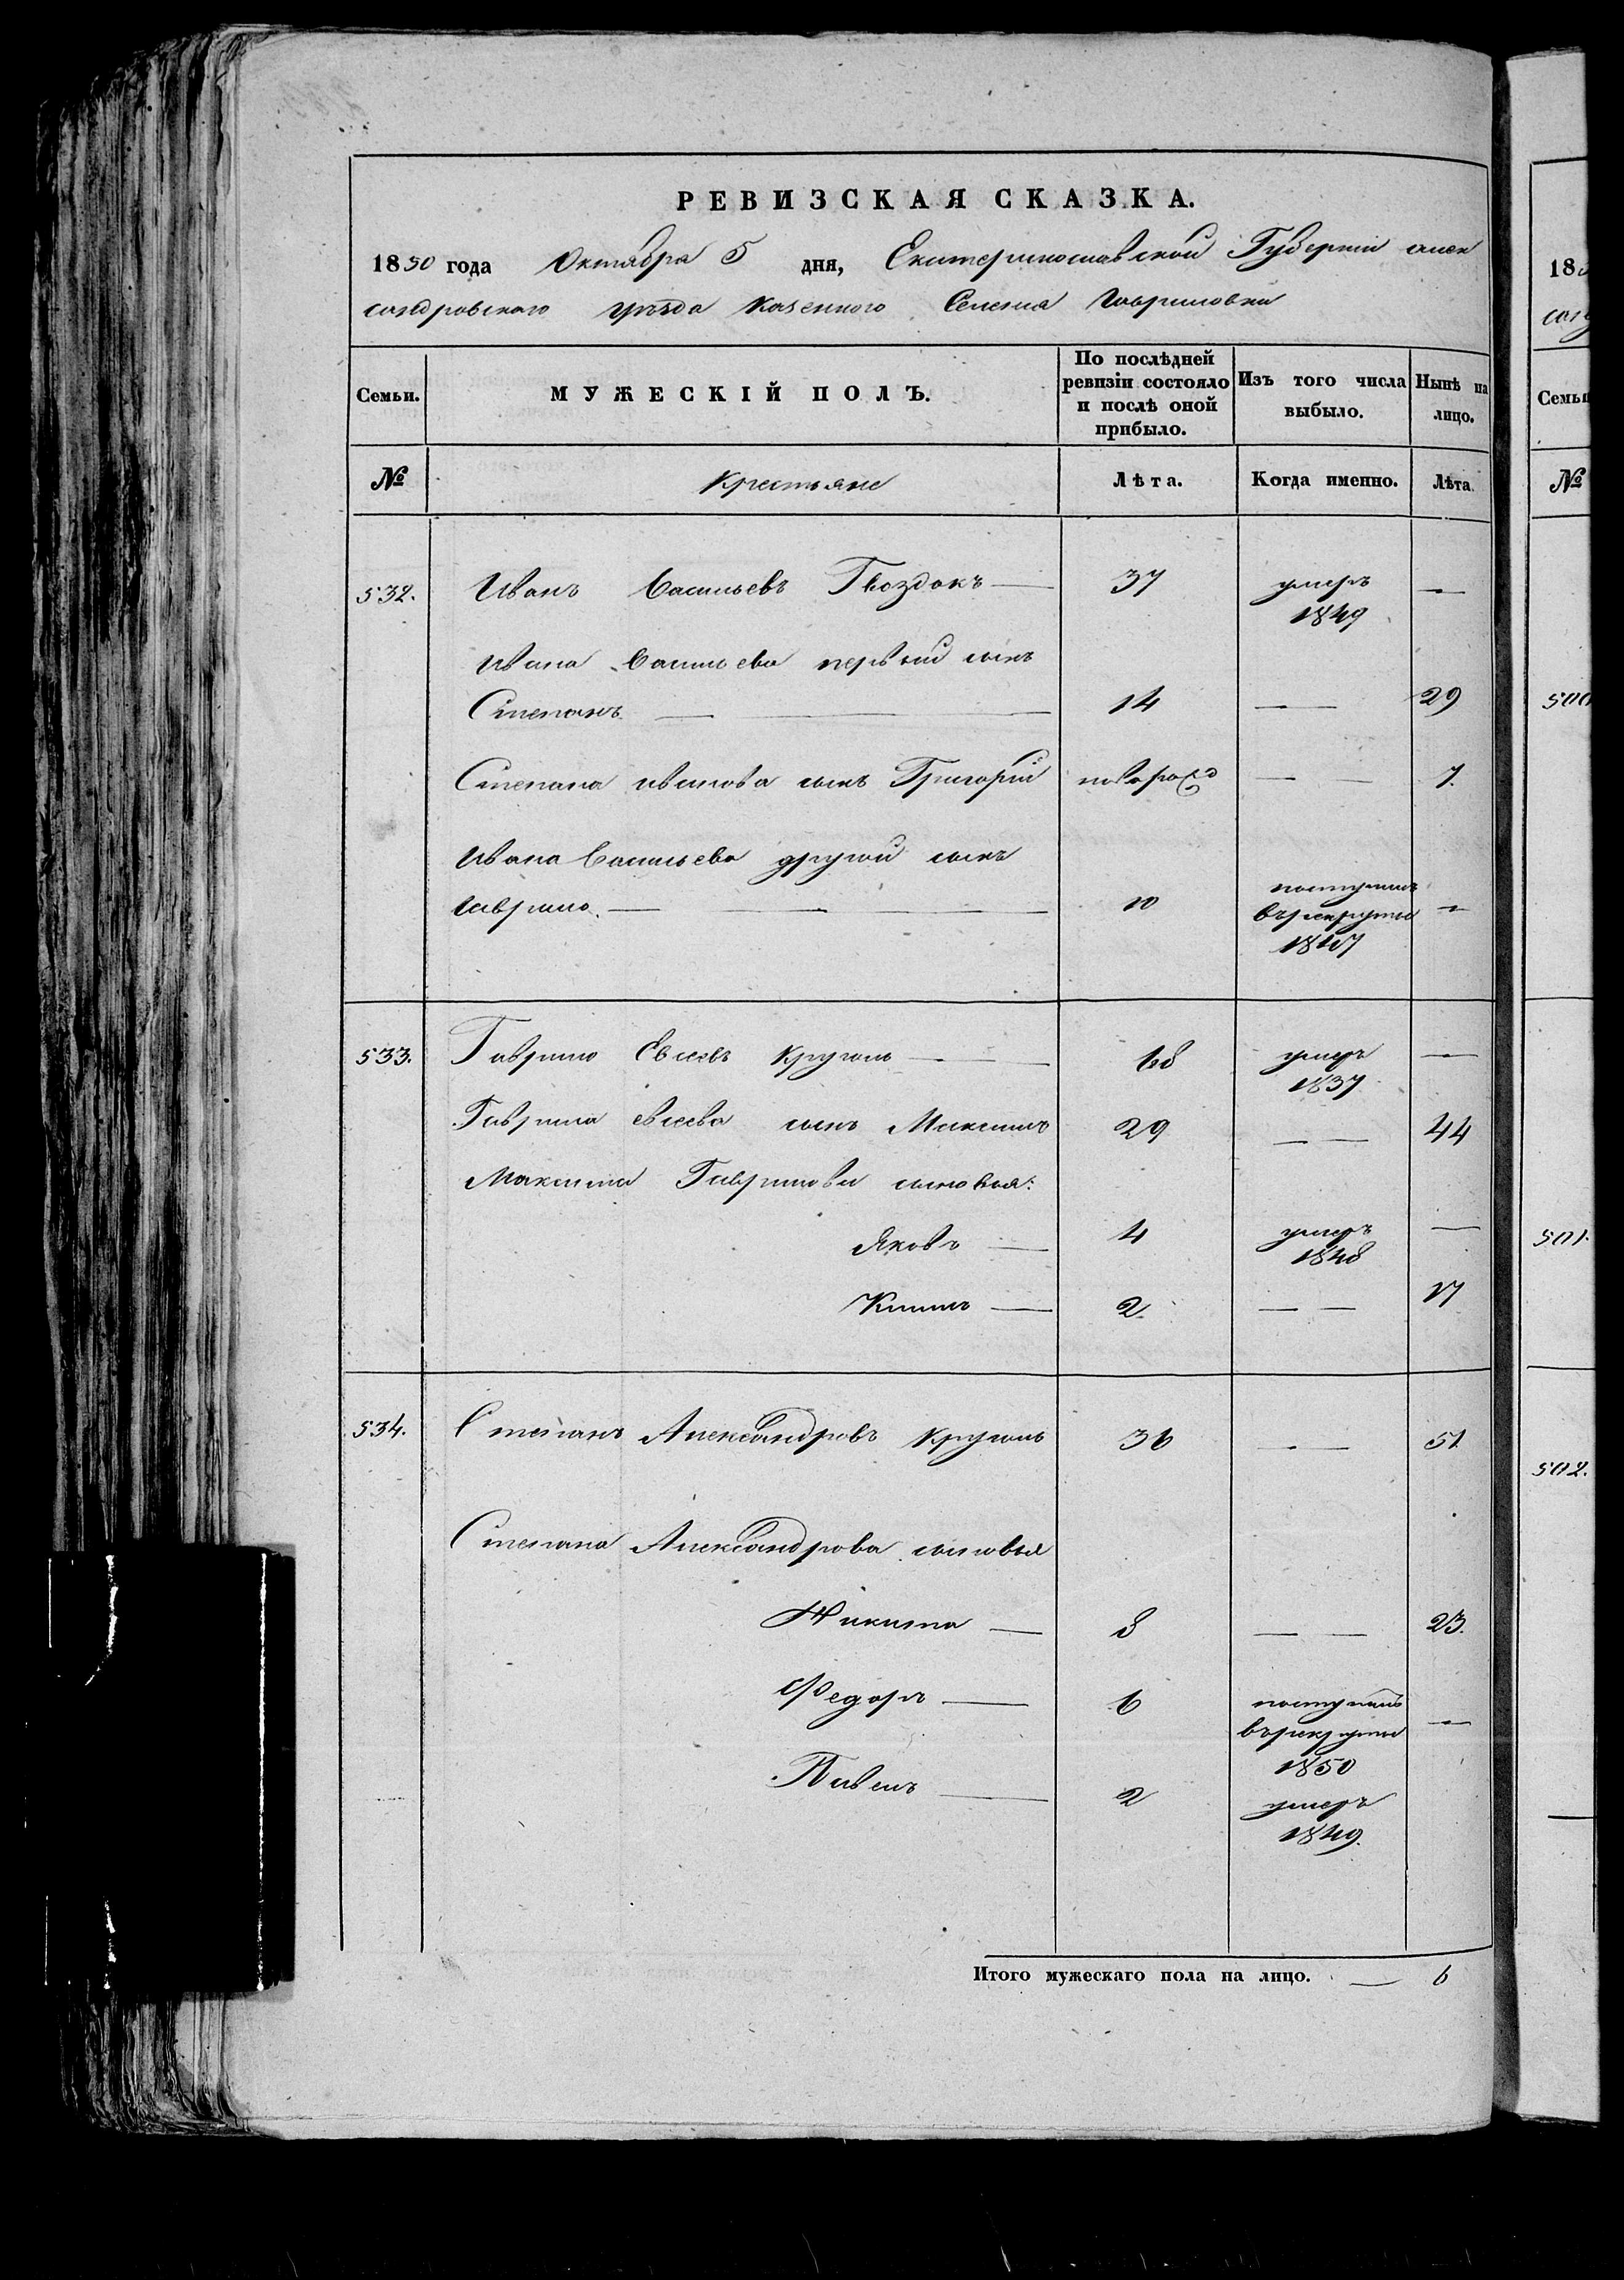 РЕВИЗСКАЯ СКАЗКА.
1850 года Октября 5 дня, Екатеринославской Губерніи алек
сандровскаго уѣзда казенного Селенія Гавриловки
Семьи. МУЖЕСКІЙ ПОЛЪ. По послѣдней ревизіи состояло и послѣ оной прибыло. Изъ того числа выбыло. Нынѣ на лицо.
№ Крестьяне Лѣта. Когда именно. Лѣта.
532. Иванъ Васильевъ Гвоздакъ — 37 умеръ 1849 —
Ивана Васильева первый сынъ
Степанъ — 14 — 29
Степана иванова сынъ Григорій новорожд — 7.
Ивана Васильева другой сынъ
Гаврило. — 10 поступилъ въ рекруты 1847 —
533. Гаврило Евсеевъ Круголь — 68 умеръ 1837 —
Гаврила евсеева сынъ Максимъ 29 — 44
Максима Гаврилова сыновья:
Яковъ — 4 умеръ 1848 —
Климъ — 2 — 17
534. Степанъ Александровъ Круголь 36 — 51
Степана Александрова сыновья
Никита — 8 — 23.
Федоръ — 6 поступилъ въ рекруты 1850 —
Павелъ — 2 умеръ 1849.
Итого мужескаго пола на лицо. — 6
18
Семьи
№
500
501.
502.